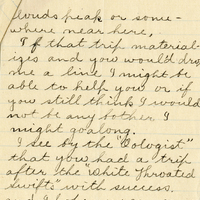 clouds peak or some-
where near here,
If that trip material-
izes and you would drop
me a line I might be
able to help you or if
you still think I would
not be any bother I
might go along.
I see by the "Oologist"
that you had a trip
after the "White Throated
Swifts" with success.